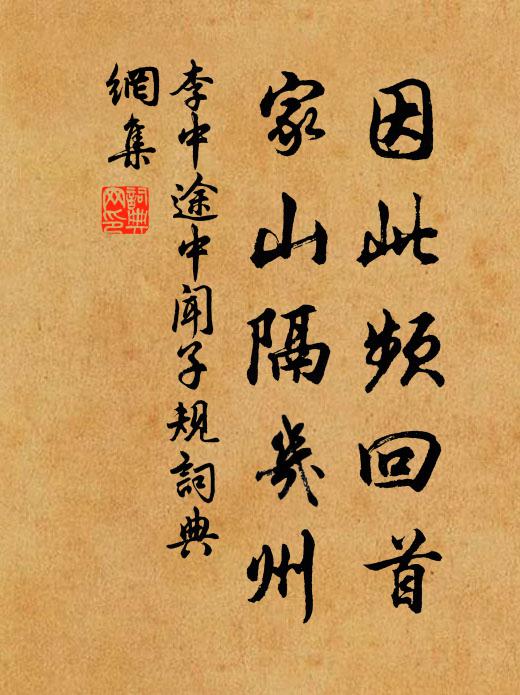 因此頻回首
家山隔幾州
李中途中聞子規詞典
網集
詞典
网印